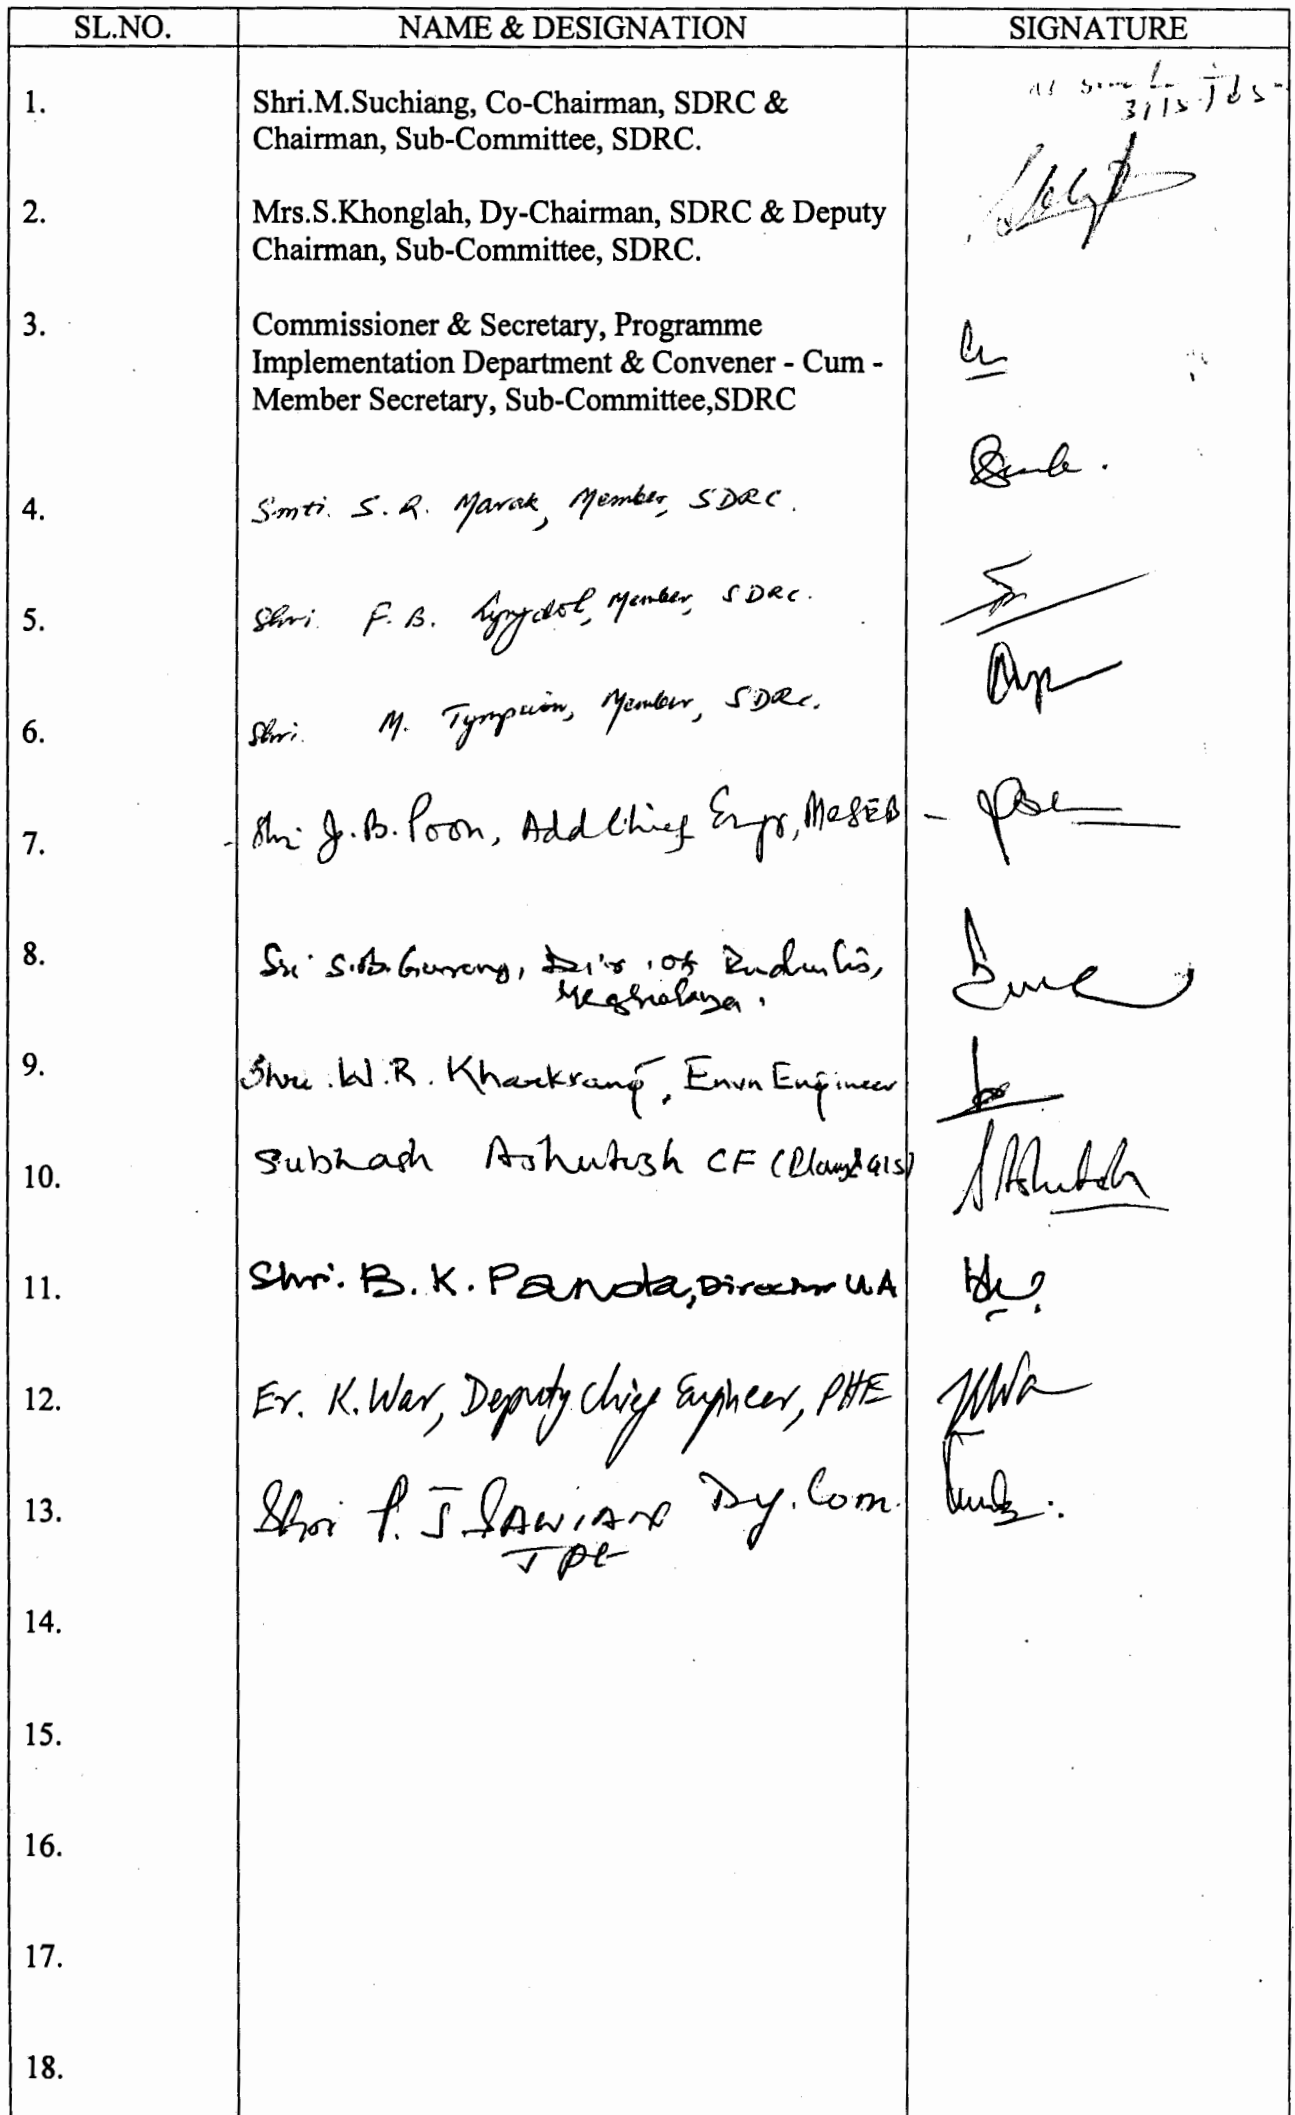 SL.NO. NAME & DESIGNATION SIGNATURE
1. Shri.M.Suchiang, Co-Chairman, SDRC &
Chairman, Sub-Committee, SDRC.
2. Mrs.S.Khonglah, Dy-Chairman, SDRC & Deputy
Chairman, Sub-Committee, SDRC.
3. Commissioner & Secretary, Programme
Implementation Department & Convener - Cum -
Member Secretary, Sub-Committee,SDRC
4. Smti. S. R. Marak, Member, SDRC.
5. Shri. F. B. Lyngdoh, Member, SDRC.
6. Shri. M. Tympuin, Member, SDRC.
7. Shri J. B. Poon, Addl Chief Engr, MeSEB -
8. Sri S.B. Gurung, Dir. of Industries,
Meghalaya.
9. Shri .W.R. Kharkrang, Envn Engineer
10. Subhash Ashutosh CF (Plang & GIS) SAshutosh
11. Shri. B. K. Panda, Director UA
12. Er. K. War, Deputy Chief Engineer, PHE KWar
13. Shri P. J SAWIAN Dy. Com.
14.
15.
16.
17.
18.